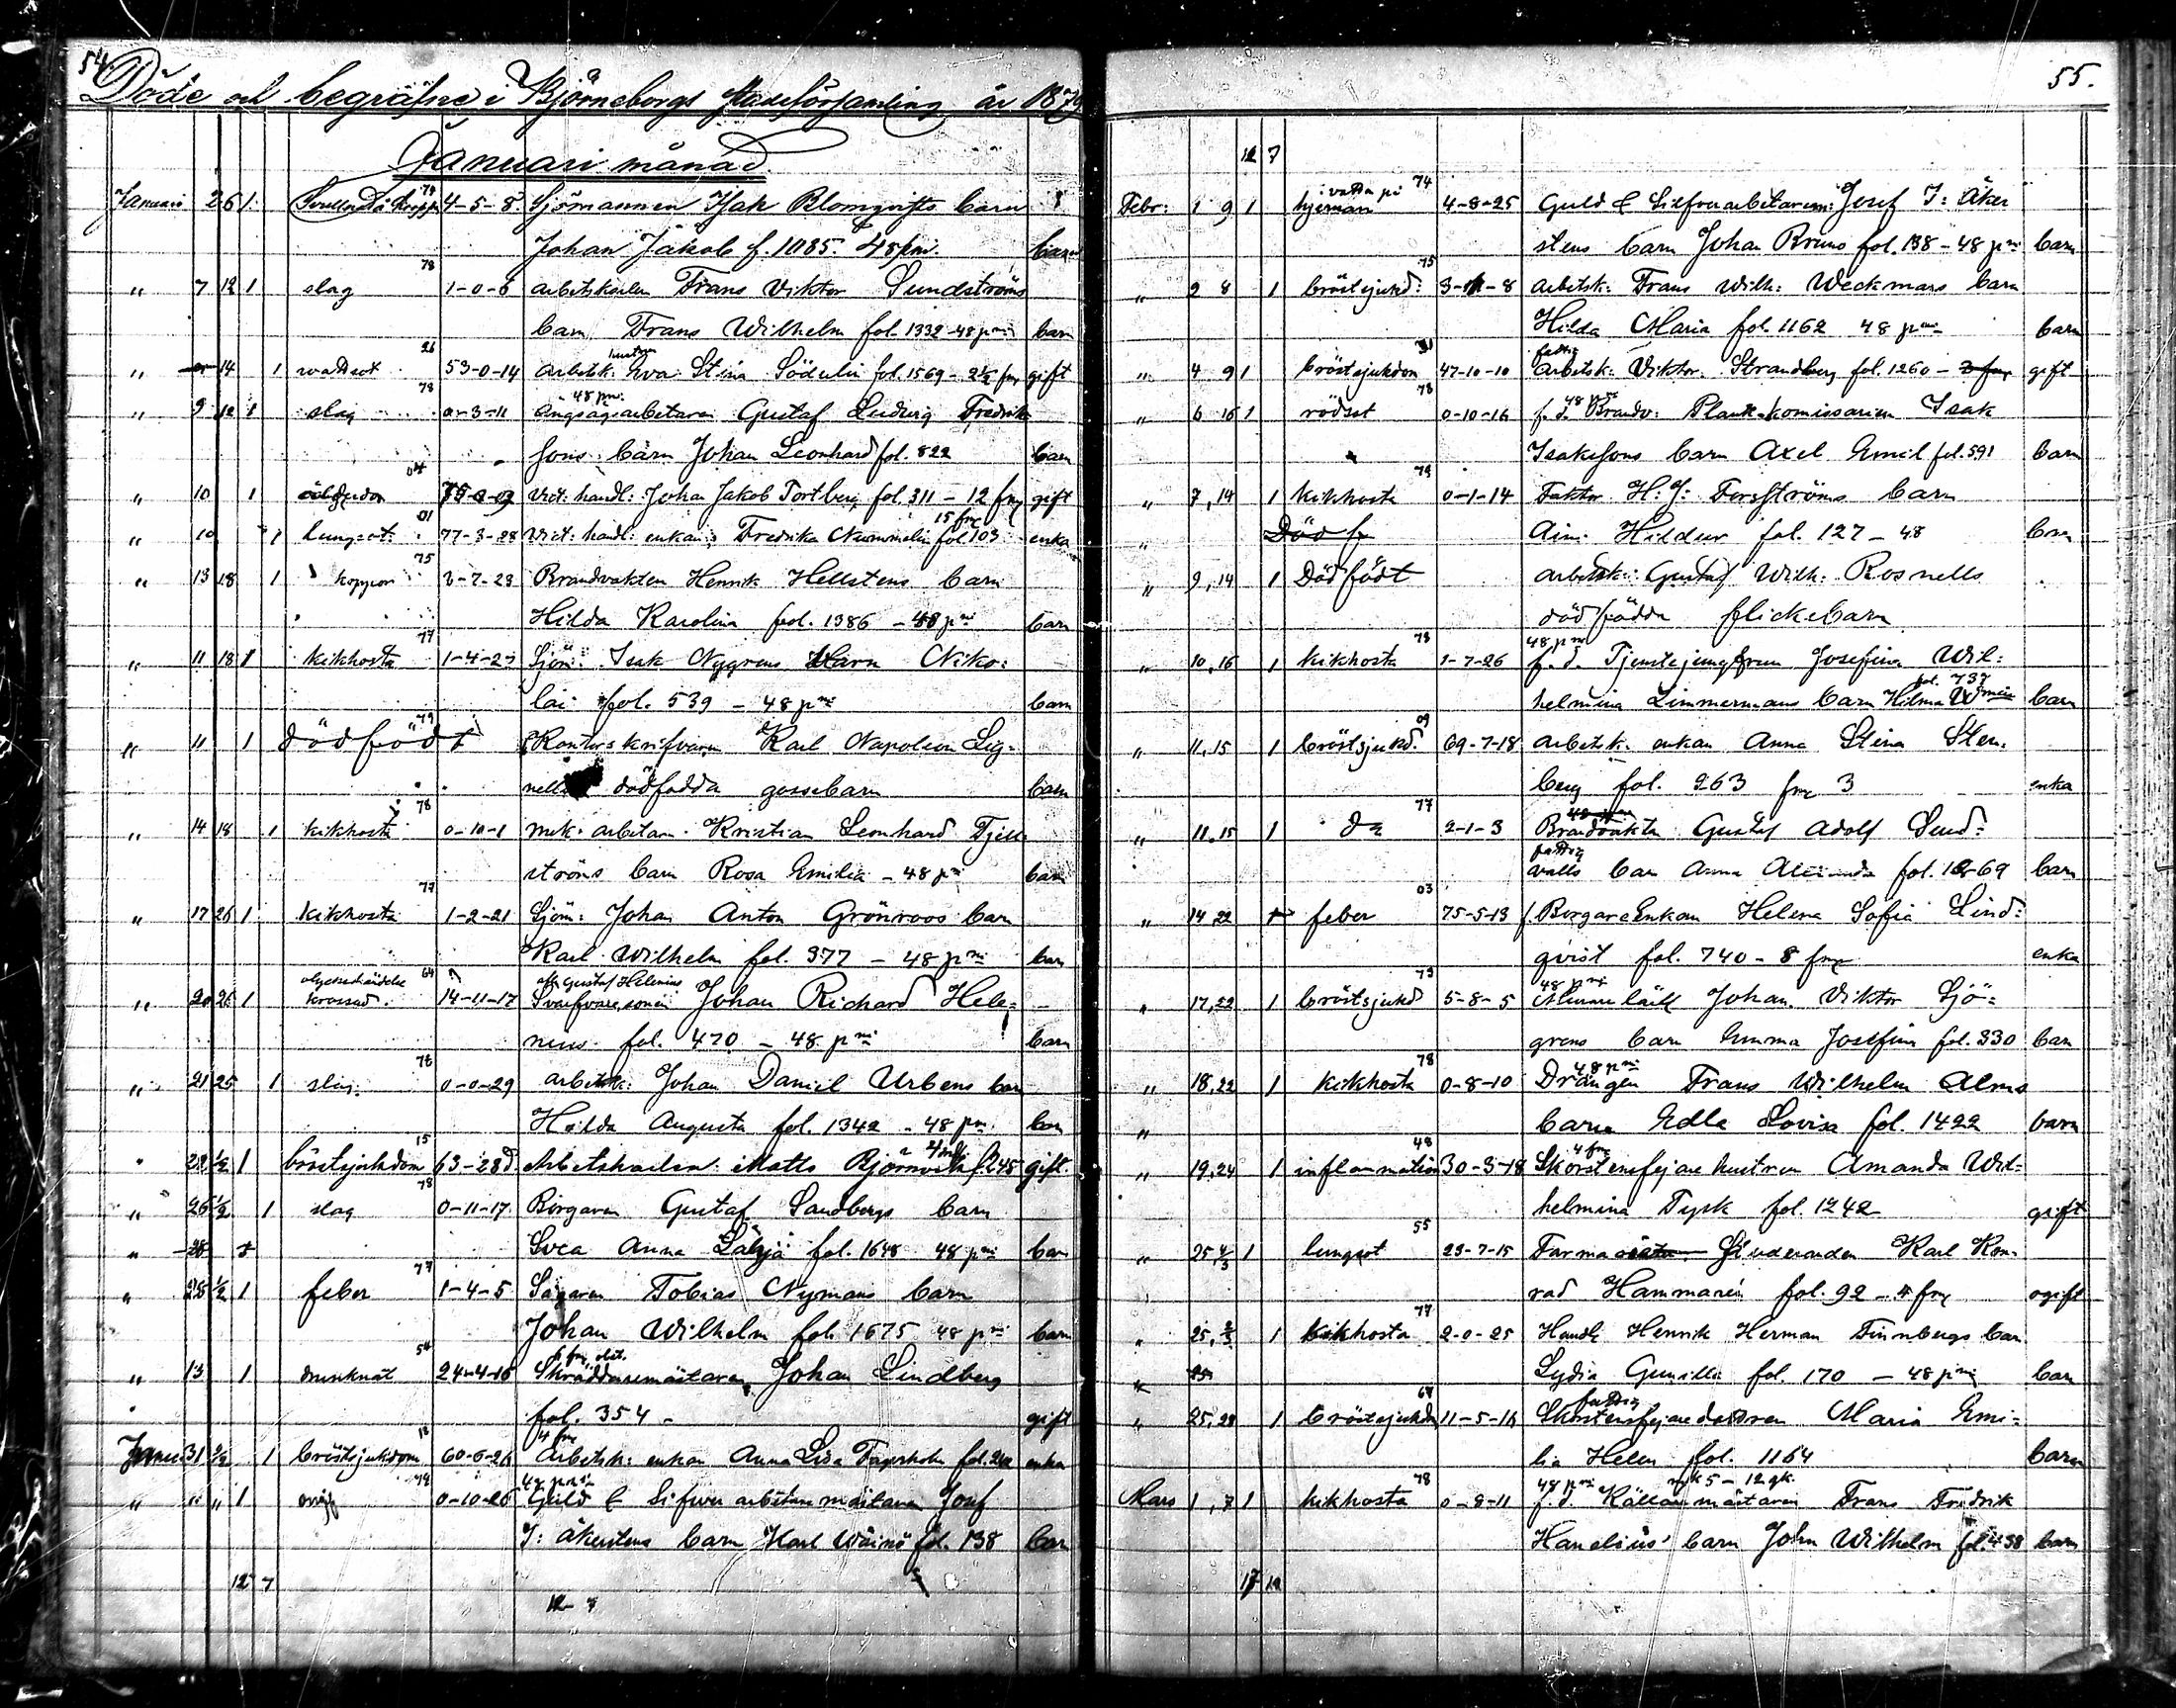 54.
Döde och begrafne i Björneborgs stadsförsamling år 1879
Januari månad.
79
Januari 2 6 1 Svullnad å kropp 4-5-8. Sjömannen Isak Blomqvists barn
Johan Jakob f. 1085. 48 pni. barn
78
" 7 12 1 slag 1-0-6 arbetskarlen Frans Viktor Sundströms
barn Frans Wilhelm fol. 1332 - 48 pni barn
26 hustrun
" 14 1 vattsot 53-0-14 arbetsk. Eva Stina Söderlin fol. 1569 - 2½ fmk gift
78 48 pni.
" 9 12 1 slag 0-3-11 ångsågsarbetaren Gustaf Ludvig Fredrik
sons barn Johan Leonhard fol. 822 barn
04
" 10 1 Vict. handl. Johan Jakob Tortberg fol. 311 - 12 fmk gift
01 15 fmk
" 10 1 lungsot. 77-3-28 Vict. handl. enkan Fredrika Nummelin fol. 103 enka
75
" 13 18 1 koppor 3-7-23 Brandvakten Henrik Hellstens barn
Hilda Karolina fol. 1386 - 48 pni barn
77
" 11 18 1 kikhosta 1-4-23 Sjöm: Isak Nygrens barn Niko:
lai fol. 539 - 48 pni barn
79
" 11 1 dödfödt Kontorskrifvaren Karl Napoleon Lig-
nells dödfödda gossebarn barn
78
" 14 18 1 kikhosta 0-10-1 mek. arbetaren Kristian Leonhard Tjell-
ströms barn Rosa Emilia - 48 pni barn
77
" 17 26 1 kikhosta 1-2-21 Sjöm: Johan Anton Grönroos barn
Karl Wilhelm fol. 377 - 48 pni barn
olyckshändelse 64 Gustaf Helenius
" 20 26 1 krossad. 14-11-17 Svarfvaresonen Johan Richard Hele-
nius fol. 470 - 48 pni barn
78
" 21 25 1 slag. 0-0-29 arbetsk: Johan Daniel Urbens barn
Hilda Augusta fol. 1342 - 48 pni. barn
15
" 29 1/2 1 bröstsjukdom 63-28d Arbetskarlen Matts Björnvik f. 245 gift.
78
" 26 1/2 1 slag 0-11-17 Borgaren Gustaf Sandbergs barn
" 28 Svea Anna fol. 1648 48 pni barn
77
" 28 1/2 1 feber 1-4-5 Sågaren Tobias Nymans barn
Johan Wilhelm fol. 1675 48 pni barn
54
" 13 1 drunknat 24-4-16 Skräddaremästaren Johan Lindberg
fol. 354 - gift
12 4 fmk
Januari 31 2/2 1 bröstsjukdom 60-6-26 Arbetsk: enkan Anna Lisa Fagerholm enka
78 48 pni
" " " 1 0-10-26 Guld & Silfver arbetare mästaren Josef
J: Åkerstens barn Karl Wäinö fol. 138 barn
12 7
12-7
55.
12 7
i vatten på 74
Febr: 1 9 1 hjernan 4-8-25 Guld & Silfverarbetaren: Josef J: Åker
stens barn Johan Bruno fol. 138 - 48 pni barn
75
" 2 8 1 bröstsjukd: 3-11-8 arbetsk: Frans Wilh: Weckmans barn
Hilda Maria fol. 1162 48 pni barn
31 fattig
" 4 9 1 bröstsjukdom 47-10-10 Arbetsk: Viktor Strandberg fol. 1260 - gift
78 48 pni
" 6 16 1 rödsot 0-10-16 f. d. Brandv: Plank-komissarien Isak
Isakssons barn Axel Emil fol. 591 barn
79
" 7, 14 1 kikhosta 0-1-14 Faktor H: J: Forsströms barn
" Död f Hildur fol. 127 - 48 barn
" 9, 14 1 Dödfödt arbetsk: Gustaf Wilh: Rosnells
dödfödda flickebarn
78 48 pni
" 10, 16 1 kikhosta 1-7-26 f. d. Tjenstejungfrun Josefina Wil:
fol. 737
helmina Limmermans barn Hilma barn
09
" 11, 15 1 bröstsjukd. 69-7-18 arbetsk. enkan Anna Stina Sten-
berg fol. 263 fmk 3 enka
77
" 11, 15 1 do 2-1-3 Brandvakten Gustaf Adolf Sund-
fattig
valls barn Anna fol. 1269 barn
03
" 14, 22 feber 75-5-13 f. Borgareenkan Helena Sofia Lind:
qvist fol. 740 - 8 fmk enka
73 48 pni
" 17, 22 1 bröstsjukd 5-8-5 Johan Viktor Sjö-
grens barn Emma Josefina fol. 330 barn
78 48 pni
" 18, 22 1 kikhosta 0-8-10 Drängen Frans Wilhelm Alms
" barn Edla Lovisa fol. 1422 barn
48 4 fmk
" 19, 24 1 inflammation 30-3-18 Skorstensfejare hustrun Amanda Wil-
helmina Tysk fol. 1242 gift
55
" 25 4/3 1 lungsot 23-7-15 Farma Studeranden Karl Kon-
rad Hammarén fol. 92 - 4 fmk ogift
77
" 25, 2/3 1 kikhosta 2-0-25 Handl. Henrik Herman Finnbergs barn
Lydia Gunilla fol. 170 - 48 pni barn
67 fattig
" 25, 28 1 bröstsjukdom 11-5-16 Skorstensfejaredottren Maria Emi-
lia Helen fol. 1164 barn
78 48 pni mk 5 - 12 gk.
Mars 1, 7 1 kikhosta 0-8-11 f. d. Källaremästaren Frans Fredrik
Hanelius' barn John Wilhelm fol. 458 barn
17 12